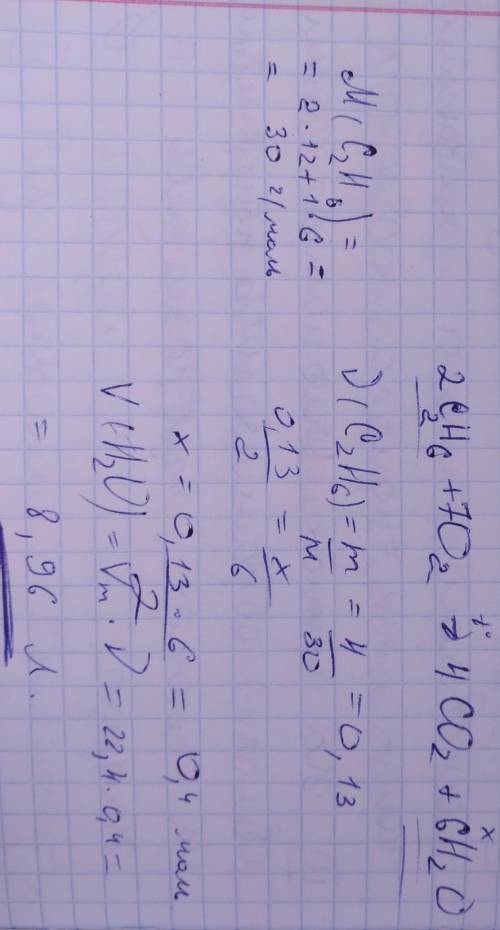 2C₂H₆ + 7O₂ →ᵗ° 4CO₂ + 6H₂O
x
M(C₂H₆) =
= 2·12+1·6 =
= 30 г/моль
ν(C₂H₆) = m/M = 4/30 = 0,13
0,13/2 = x/6
x = 0,13·6/2 = 0,4 моль
V(H₂O) = Vm · ν = 22,4·0,4 =
= 8,96 л.